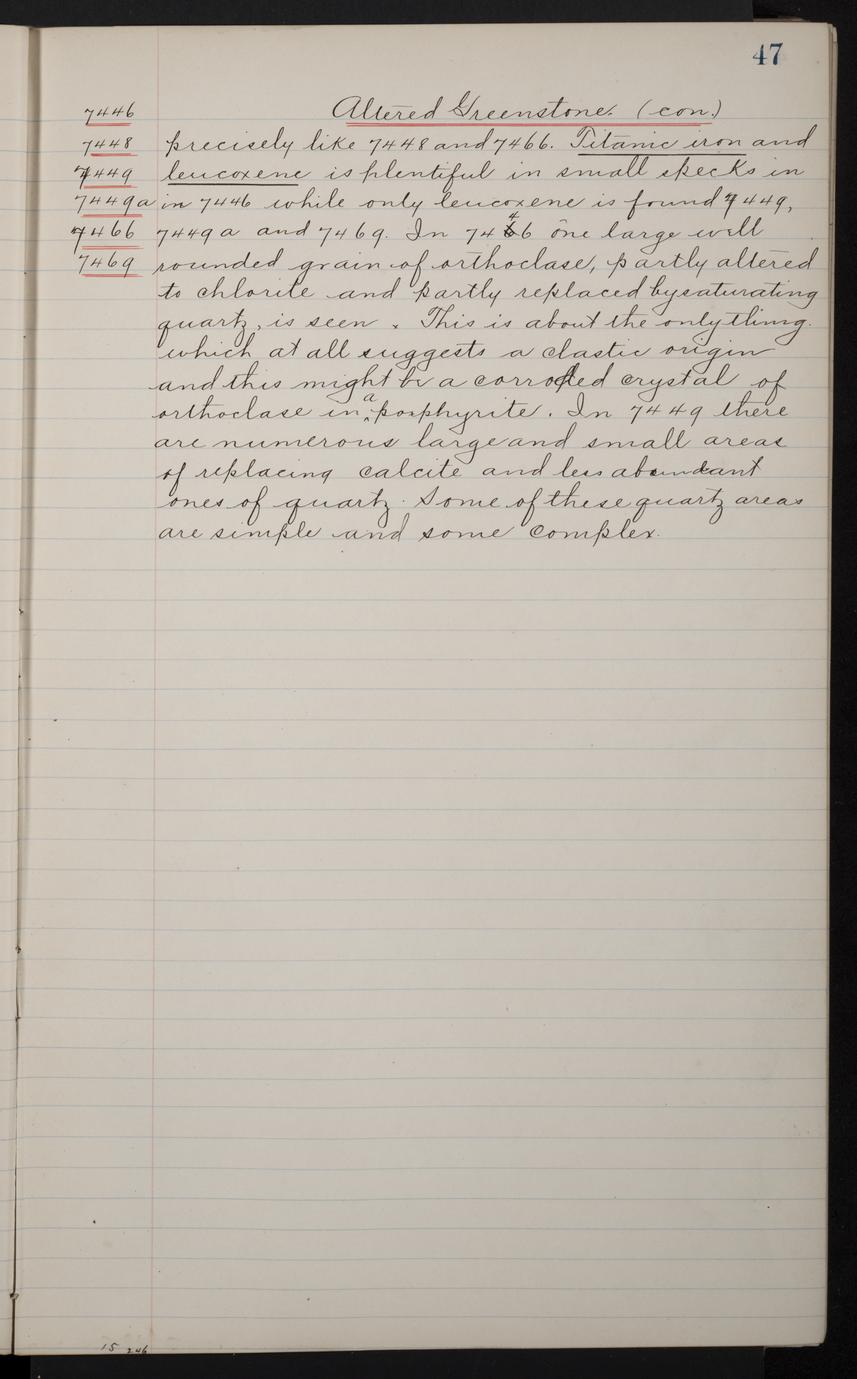 47
7446 Altered Greenstone. (con.)
7448 precisely like 7448 and 7466. Titanic iron and
7449 leucoxene is plentiful in small specks in
7449a in 7446 while only leucoxene is found 7449,
7466 7449a and 7469. In 7446 one large well
7469 rounded grain of orthoclase, partly altered
to chlorite and partly replaced by saturating
quartz, is seen. This is about the only thing
which at all suggests a clastic origin
and this might be a corroded crystal of
orthoclase in a porphyrite. In 7449 there
are numerous large and small areas
of replacing calcite and less abundant
ones of quartz. Some of these quartz areas
are simple and some complex.
15 246